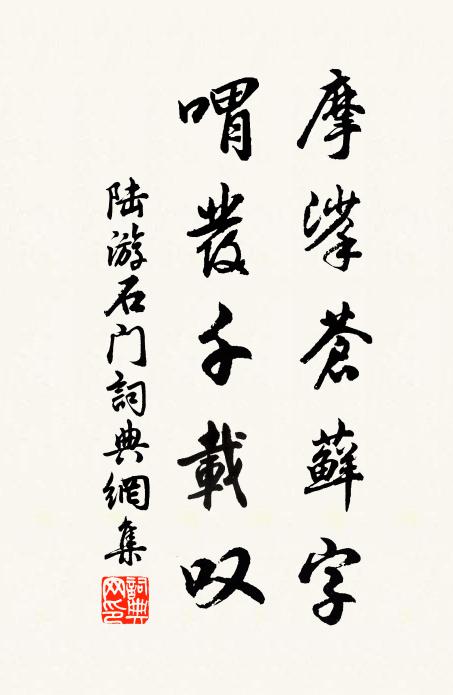 摩挲苍藓字
喟发千载叹
陆游石门詞典網集
詞典网印